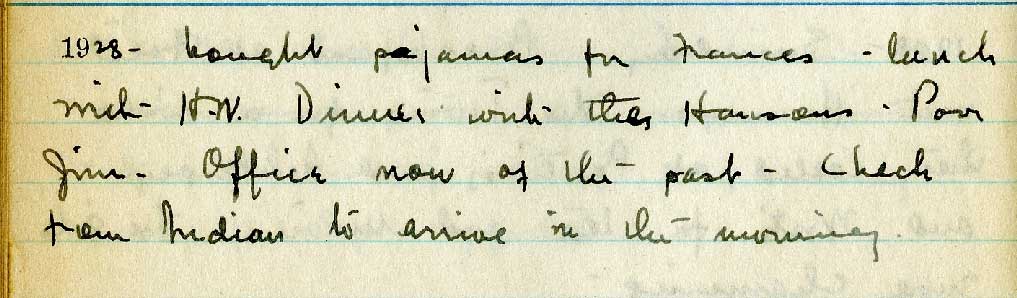 1928- bought pajamas for Frances - lunch
with H.W. Dinner with the Hansens - Poor
Jim - Office now of the past - Check
from Indian to arrive in the morning.